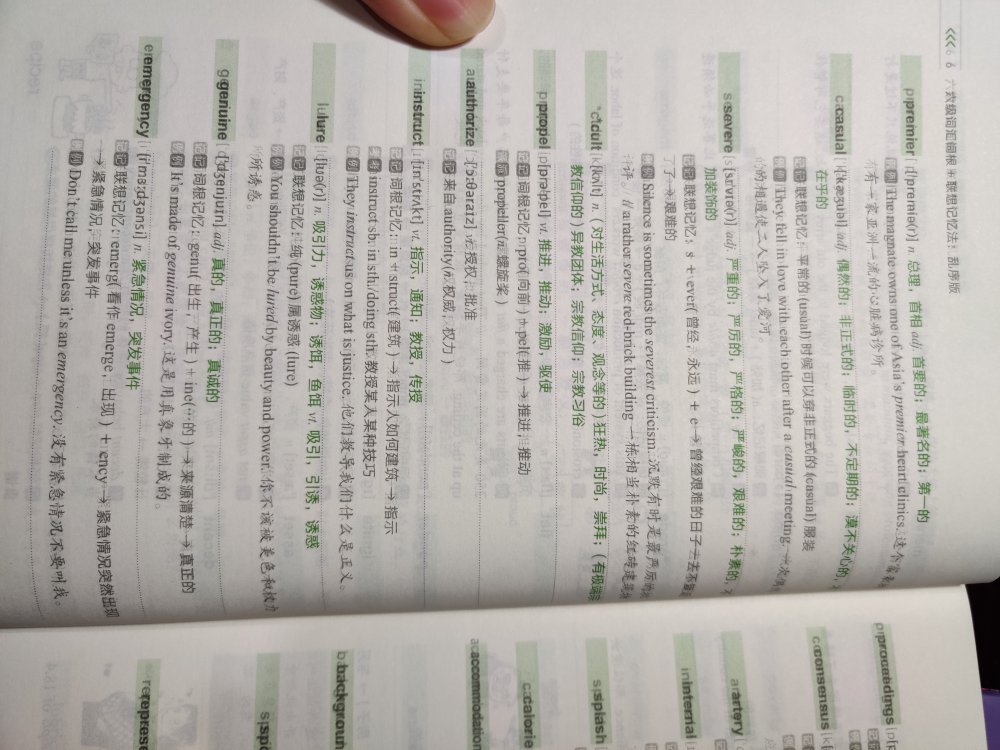 <<< 6 六级词汇词根+联想记忆法：乱序版
premier [ˈpremiə(r)] n. 总理，首相 adj. 首要的；最著名的；第一的
例 The magnate owns one of Asia's premier heart clinics. 这个富豪
有一家亚洲一流的心脏病诊所。
casual [ˈkæʒuəl] adj. 偶然的；非正式的；临时的，不定期的；漠不关心的，
在乎的
记 联想记忆：平常的(usual)时候可以穿非正式的(casual)服装
例 They fell in love with each other after a casual meeting. 一次偶
的相遇使二人坠入了爱河。
severe [sɪˈvɪə(r)] adj. 严重的；严厉的，严格的；严峻的，艰难的；朴素的，
加装饰的
记 联想记忆：s + ever(曾经，永远) + e → 曾经艰难的日子一去不
了 → 艰难的
例 Silence is sometimes the severest criticism. 沉默有时是最严厉的
评。// a rather severe red-brick building 一栋相当朴素的红砖建筑
cult [kʌlt] n. (对生活方式、态度、观念等的)狂热，时尚，崇拜；(有极端
教信仰的)异教团体；宗教信仰；宗教习俗
propel [prəˈpel] vt. 推进，推动；激励，驱使
记 词根记忆：pro(向前) + pel(推) → 推进，推动
派 propeller(n. 螺旋桨)
authorize [ˈɔːθəraɪz] vt. 授权；批准
记 来自 authority(n. 权威，权力)
instruct [ɪnˈstrʌkt] vt. 指示，通知；教授，传授
记 词根记忆：in + struct(建筑) → 指示人如何建筑 → 指示
考 instruct sb. in sth./doing sth. 教授某人某种技巧
例 They instruct us on what is justice. 他们教导我们什么是正义。
lure [lʊə(r)] n. 吸引力，诱惑物；诱饵，鱼饵 vt. 吸引，引诱，诱惑
记 联想记忆：纯(pure)属诱惑(lure)
例 You shouldn't be lured by beauty and power. 你不该被美色和权力
所诱惑。
genuine [ˈdʒenjuɪn] adj. 真的，真正的；真诚的
记 词根记忆：genu(出生，产生) + ine(…的) → 来源清楚 → 真正的
例 It's made of genuine ivory. 这是用真象牙制成的。
emergency [iˈmɜːdʒənsi] n. 紧急情况，突发事件
记 联想记忆：emerg(看作 emerge，出现) + ency → 紧急情况突然出现
→ 紧急情况，突发事件
例 Don't call me unless it's an emergency. 没有紧急情况不要叫我。
proceedings
consensus
artery
internal
splash
calorie
accommodation
background